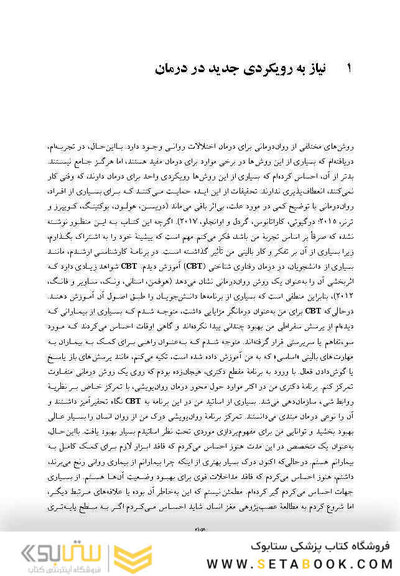 ۱ نیاز به رویکردی جدید در درمان
روش‌های مختلفی از روان‌درمانی برای درمان اختلالات روانی وجود دارد. بااین‌حال، در تجربه‌ام،
دریافته‌ام که بسیاری از این روش‌ها در برخی موارد برای درمان مفید هستند، اما هرگز جامع نیستند.
بدتر از آن، احساس کرده‌ام که بسیاری از این روش‌ها رویکردی واحد برای درمان دارند، که وقتی کار
نمی‌کنند، انعطاف‌پذیری ندارند. تحقیقات از این ایده حمایت می‌کنند که برای بسیاری از افراد،
روان‌درمانی با توضیح کمی در مورد علت، بی‌اثر باقی می‌ماند (دریسن، هولون، بوکتینگ، کویپرز و
ترنر، ۲۰۱۵؛ درگیوتی، کاراتانوس، گردل و اوانجلو، ۲۰۱۷). اگرچه این کتاب به این منظور نوشته
نشده که صرفاً بر اساس تجربهٔ من باشد، فکر می‌کنم مهم است که پیشینهٔ خود را به اشتراک بگذارم،
زیرا بسیاری از آن بر تفکر و کار بالینی من تأثیر گذاشته است. در برنامهٔ کارشناسی ارشدم، مانند
بسیاری از دانشجویان، در درمان رفتاری شناختی (CBT) آموزش دیدم. CBT شواهد زیادی دارد که
اثربخشی آن را به‌عنوان یک روش روان‌درمانی نشان می‌دهد (هوفمن، اسنانی، ونک، ساویر و فانگ،
۲۰۱۲)، بنابراین منطقی است که بسیاری از برنامه‌ها دانش‌جویان را طبق اصول آن آموزش دهند.
درحالی‌که CBT برای من به‌عنوان درمانگر مزایایی داشت، متوجه شدم که بسیاری از بیمارانی که
دیده‌ام از پرسش سقراطی من بهبود چندانی پیدا نکرده‌اند و گاهی اوقات احساس می‌کردند که مورد
سوءتفاهم یا سرپرستی قرار گرفته‌اند. متوجه شدم که به‌عنوان راهی برای کمک به بیماران به
مهارت‌های بالینی «اساسی» که به من آموزش داده شده است، تکیه می‌کنم، مانند پرسش‌های باز پاسخ
یا گوش‌دادن فعال. با ورود به برنامهٔ مقطع دکتری، هیجان‌زده بودم که روی یک روش درمانی متفاوت
تمرکز کنم. برنامهٔ دکتری من در اکثر موارد حول محور درمان روان‌پویشی، با تمرکز خاص بر نظریهٔ
روابط شیء سازمان‌دهی می‌شد. بسیاری از اساتید من در این برنامه به CBT نگاه تحقیرآمیز داشتند و
آن را نوعی درمان مبتدی می‌دانستند. تمرکز برنامهٔ روان‌پویشی درک من از روان انسان را بسیار عالی
بهبود بخشید و توانایی من برای مفهوم‌پردازی موردی تحت نظر اساتیدم بسیار بهبود یافت. بااین‌حال،
به‌عنوان یک متخصص در این مدت هنوز احساس می‌کردم که فاقد ابزار لازم برای کمک کامل به
بیمارانم هستم. درحالی‌که اکنون درک بسیار بهتری از اینکه چرا بیمارانم از بیماری روانی رنج می‌برند،
داشتم، هنوز احساس می‌کردم که فاقد مداخلات قوی برای بهبود وضعیت آن‌ها هستم. از بسیاری
جهات احساس می‌کردم گیر کرده‌ام. مطمئن نیستم که این به‌خاطر آن بوده یا علاقه‌های مرتبط دیگر،
اما شروع کردم به مطالعهٔ عصب‌پژوهی مغز انسان. شاید احساس می‌کردم اگر به سطح پایه‌تری
فروشگاه کتاب پزشکی ستابوک
WWW.SETABOOK.COM
ستابوک
فروشگاه اینترنتی کتاب